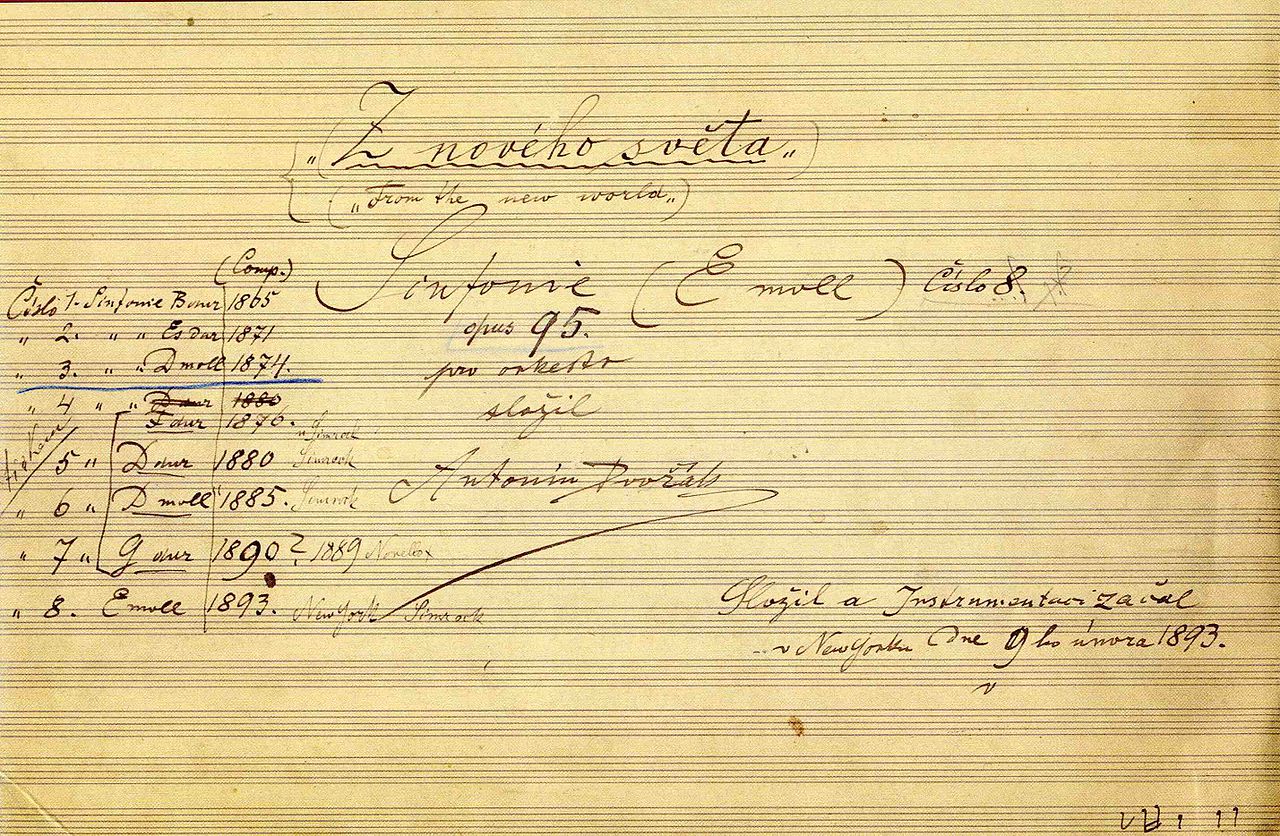 „Z nového světa„
(„From the new world„)
Sinfonie (E moll) Číslo 8.
opus 95.
pro orkestr
složil
Antonín Dvořák
(Comp.)
Číslo 1. Sinfonie B dur 1865
„ 2. „ „ Es dur 1871
„ 3. „ „ D moll 1874.
„ 4 „ „ D dur 1880
F dur 1876. Simrock
5 „ D dur 1880 Simrock
„ 6 „ D moll 1885. Simrock
„ 7 „ G dur 1890? 1889 Novello
„ 8. E moll 1893. New York Simrock
Složil a Instrumentaci začal
v New Yorku Dne 9ho února 1893.